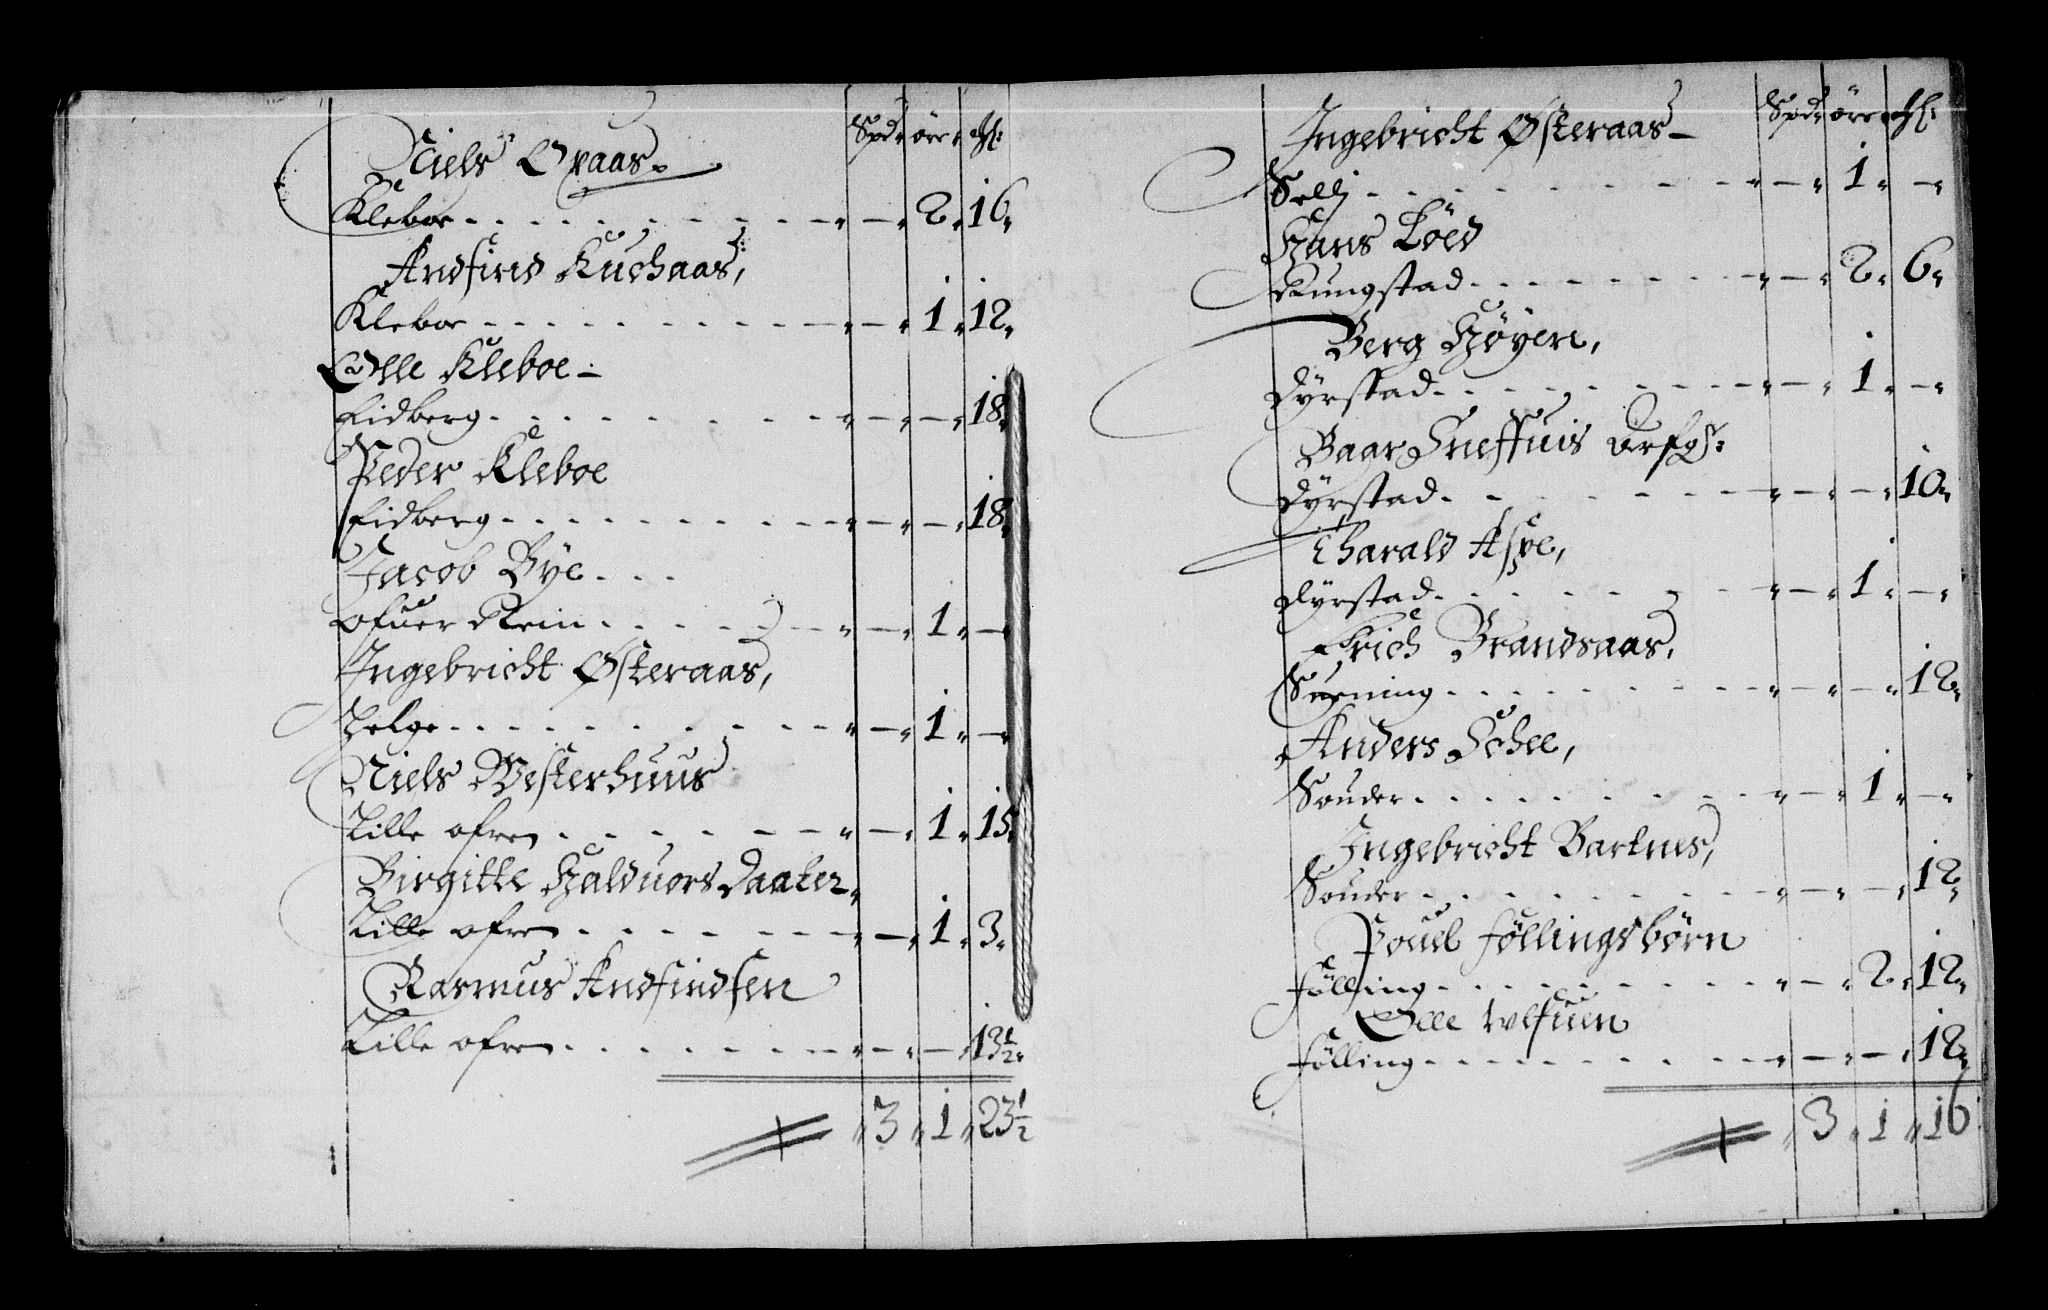 Spd: öre:
Niels Opaas.
Kleboe 2. 16.
Andfind Kuchaas,
Kleboe 1. 12.
Olle Kleboe
Eidberg 18.
Peder Kleboe
Eidberg 18.
Jacob Bye
Ofuer Rein 1.
Ingebricht Østeraas,
Helge 1.
Niels Westerhuus
Lille ofren 1. 15.
Birgitte Halduors Daater,
Lille ofren 1. 3.
Rasmus Andfindsen
Lille ofren 13½.
3. 1. 23½
Spd: öre
Ingebricht Østeraas
Selli 1.
Hans Löed
Rungstad 2. 6.
Berg Høyem,
Dyrstad 1.
Baar Sneffuis
Dyrstad 10.
Tharald Aspe,
Dyrstad 1.
Erich Brandsaas,
Suening 12.
Anders Schee,
Souder 1.
Ingebricht Bartnes,
Souder 12.
Pouel föllings börn
fölling 2. 12.
Olle tulfuen
fölling 12.
3. 1. 16